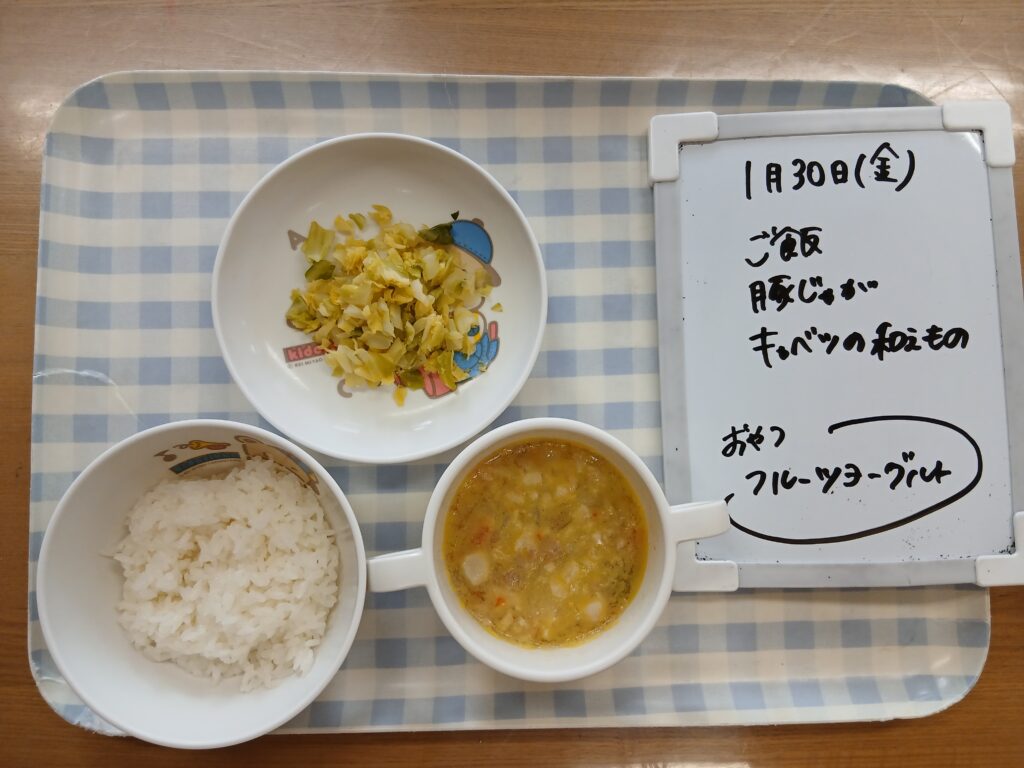 1月30日(金)
ご飯
豚じゃが
キャベツの和えもの
おやつ
フルーツヨーグルト